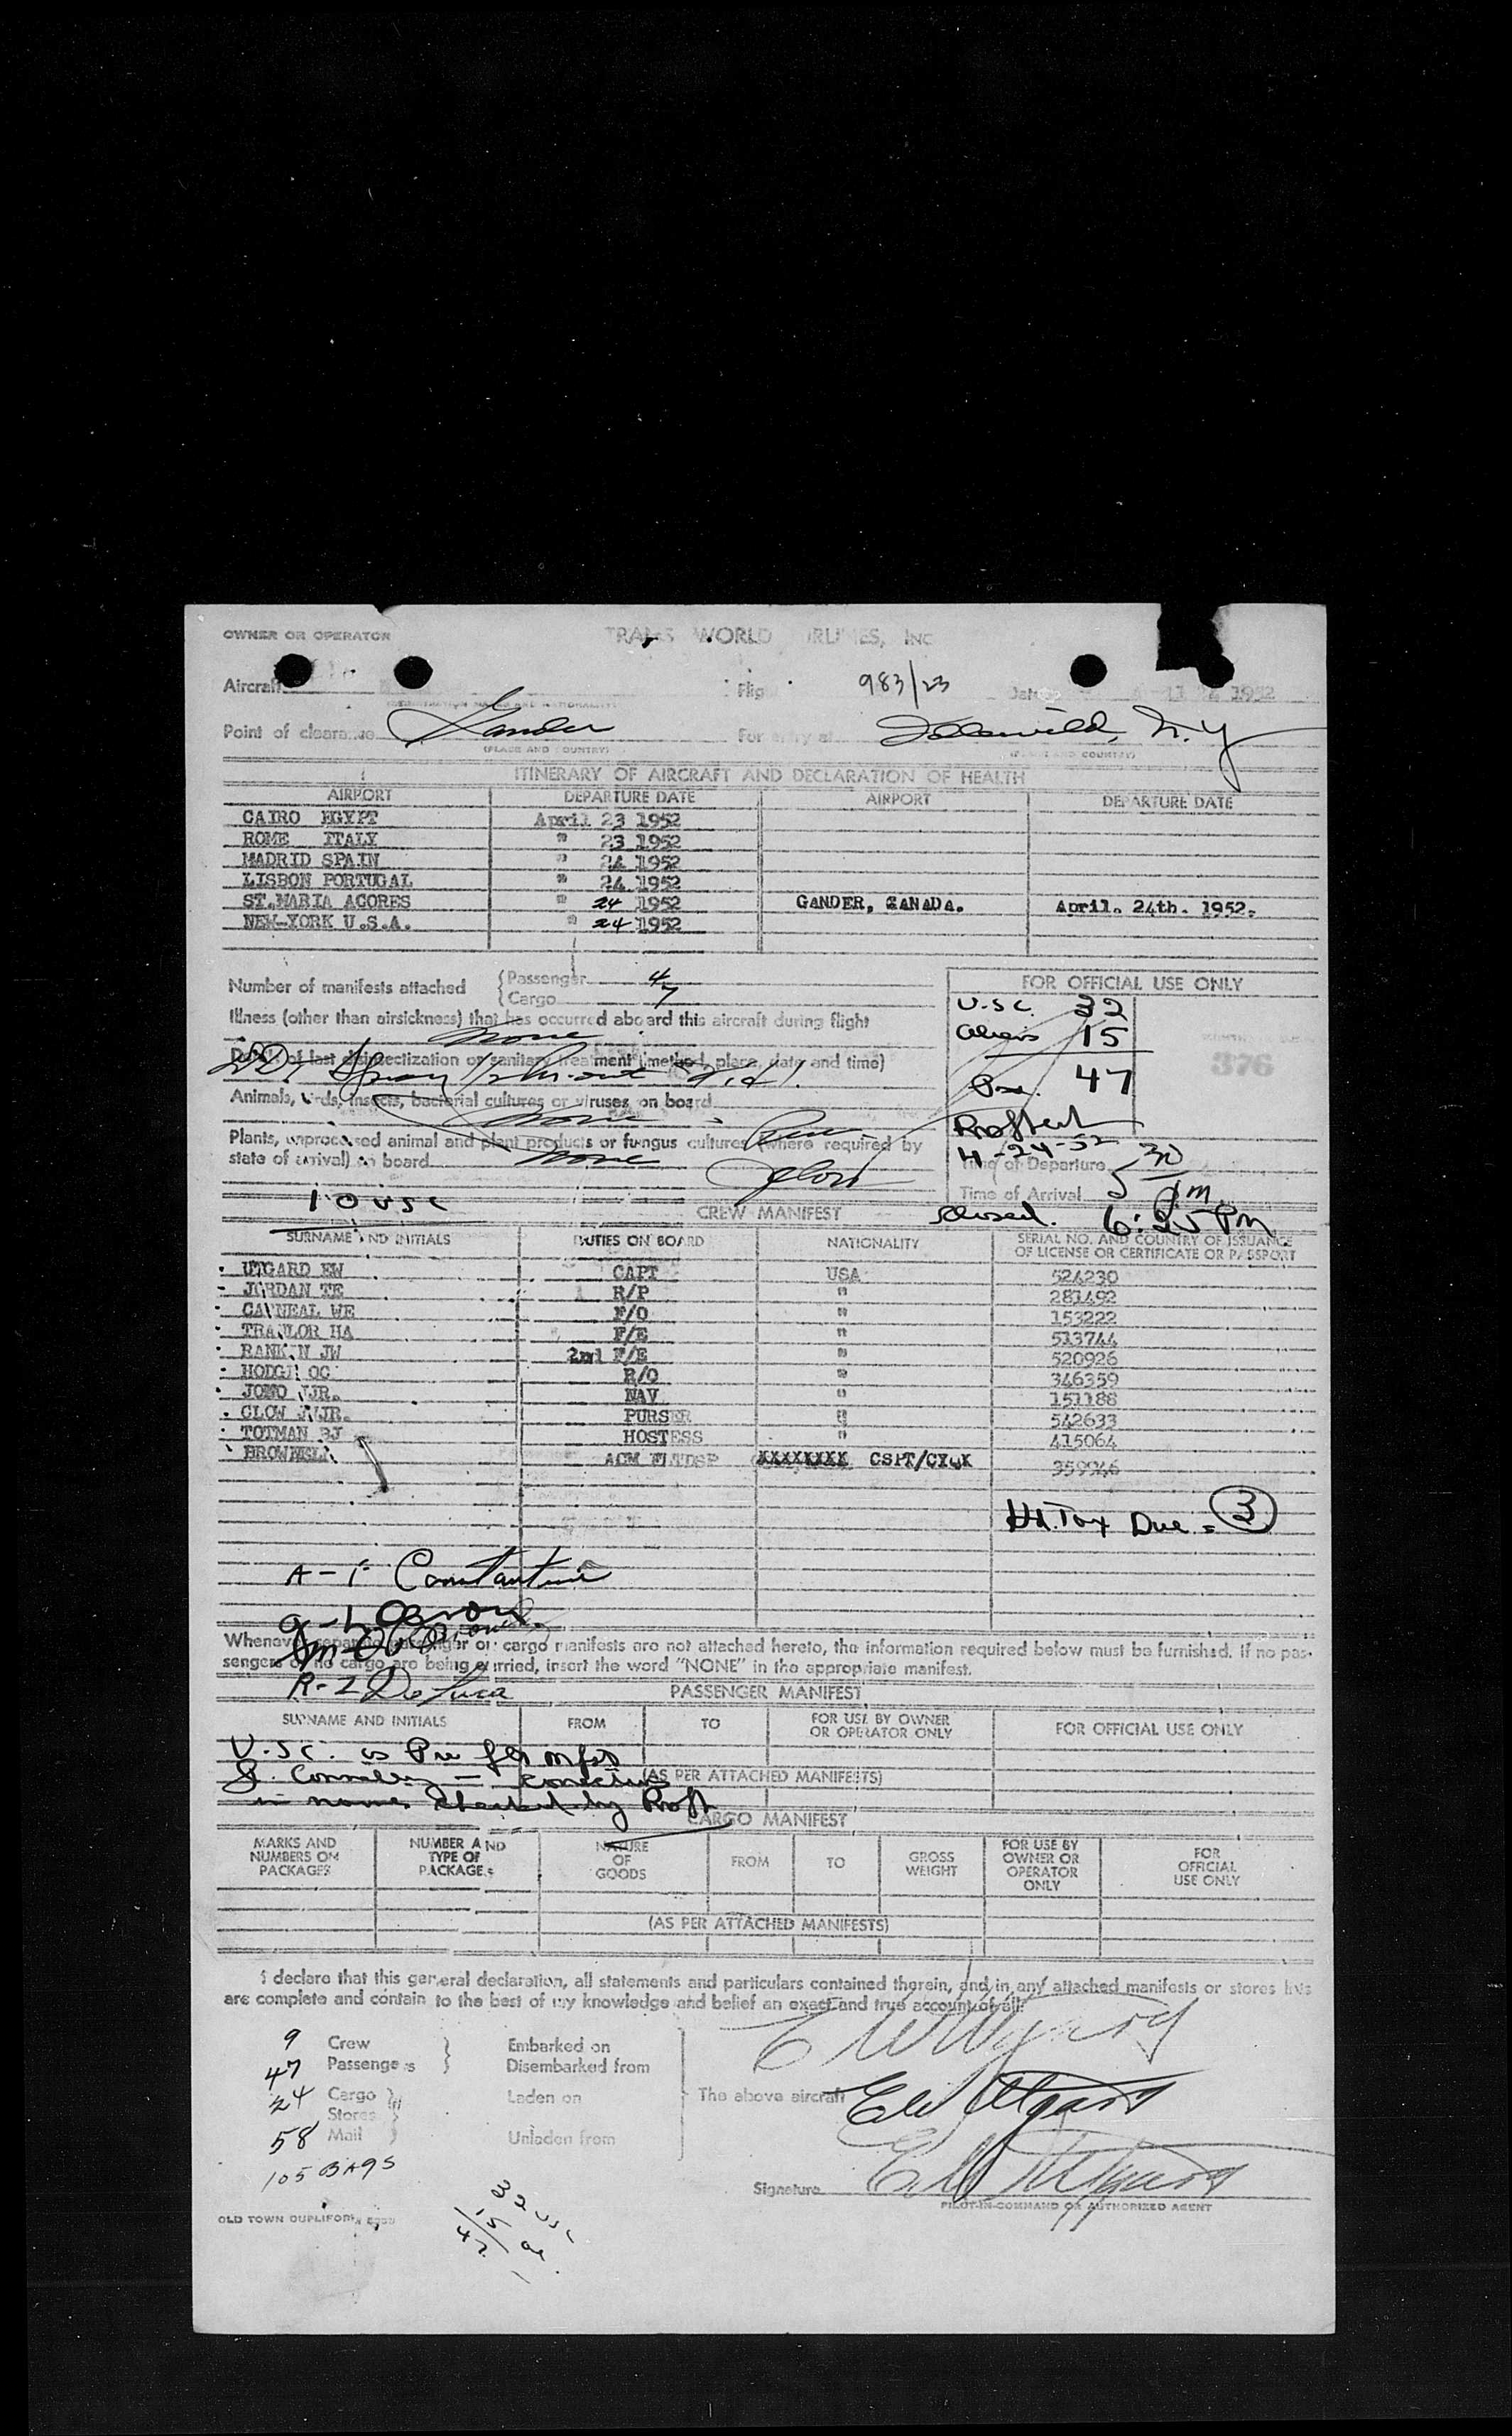 OWNER OR OPERATOR TRANS WORLD AIRLINES, INC
Aircraft Flight 983/23 Date 1952
Point of clearance Gander For entry at Idlewild, N.Y
(PLACE AND COUNTRY) (PLACE AND COUNTRY)
ITINERARY OF AIRCRAFT AND DECLARATION OF HEALTH
AIRPORT DEPARTURE DATE AIRPORT DEPARTURE DATE
CAIRO EGYPT April 23 1952
ROME ITALY " 23 1952
MADRID SPAIN " 24 1952
LISBON PORTUGAL " 24 1952
ST.MARIA ACORES " 24 1952 GANDER, CANADA. April. 24th. 1952.
NEW-YORK U.S.A. " 24 1952
Number of manifests attached Passenger 4
Cargo 7
FOR OFFICIAL USE ONLY
U.S.C. 32
Aliens 15
376
Pax. 47
4-24-52
Time of Departure 5 30
Time of Arrival PM.
Closed. 6:25 PM
Illness (other than airsickness) that has occurred aboard this aircraft during flight
None
Details of last disinsectization or sanitary treatment (method, place, date and time)
Spray
Animals, birds, insects, bacterial cultures or viruses on board
None
Plants, unprocessed animal and plant products or fungus cultures (where required by
state of arrival) on board None
10 USC
CREW MANIFEST
SURNAME AND INITIALS DUTIES ON BOARD NATIONALITY SERIAL NO. AND COUNTRY OF ISSUANCE
OF LICENSE OR CERTIFICATE OR PASSPORT
UTGARD EW CAPT USA 524230
JORDAN TE R/P " 281492
CANNEAL WE F/O " 153222
TRAYLOR HA F/E " 513744
RANKIN JW 2nd F/E " 520926
HODGE OC R/O " 346359
NAV " 151188
CLOW JR. PURSER " 542633
TOTMAN BJ HOSTESS " 415064
ACM XXXXXXXX 359946
Hd. Tax Due = 3
A-1 Constantine
R-2 DeLuca
Whenever separate passenger or cargo manifests are not attached hereto, the information required below must be furnished. If no pas-
sengers or no cargo are being carried, insert the word "NONE" in the appropriate manifest.
PASSENGER MANIFEST
SURNAME AND INITIALS FROM TO FOR USE BY OWNER
OR OPERATOR ONLY FOR OFFICIAL USE ONLY
U.S.C. as Per
(AS PER ATTACHED MANIFESTS)
in names checked by Proft
CARGO MANIFEST
MARKS AND
NUMBERS ON
PACKAGES NUMBER AND
TYPE OF
PACKAGES NATURE
OF
GOODS FROM TO GROSS
WEIGHT FOR USE BY
OWNER OR
OPERATOR
ONLY FOR
OFFICIAL
USE ONLY
(AS PER ATTACHED MANIFESTS)
I declare that this general declaration, all statements and particulars contained therein, and in any attached manifests or stores lists
are complete and contain to the best of my knowledge and belief an exact and true account of all:
9 Crew Embarked on
47 Passengers Disembarked from
24 Cargo Laden on The above aircraft EW Utgard
Stores
58 Mail Unladen from
105 BAgS
Signature EW Utgard
PILOT-IN-COMMAND OR AUTHORIZED AGENT
32 USC
15
47
OLD TOWN DUPLIFORM